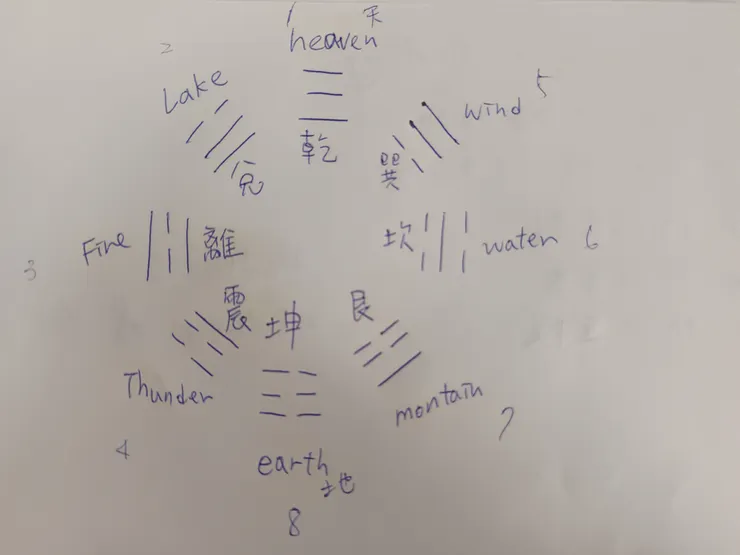 1 天
heaven
乾
2
Lake
兌
5
wind
巽
3
Fire
離
坎
water 6
震
Thunder
4
坤
艮
montain
7
earth
地
8